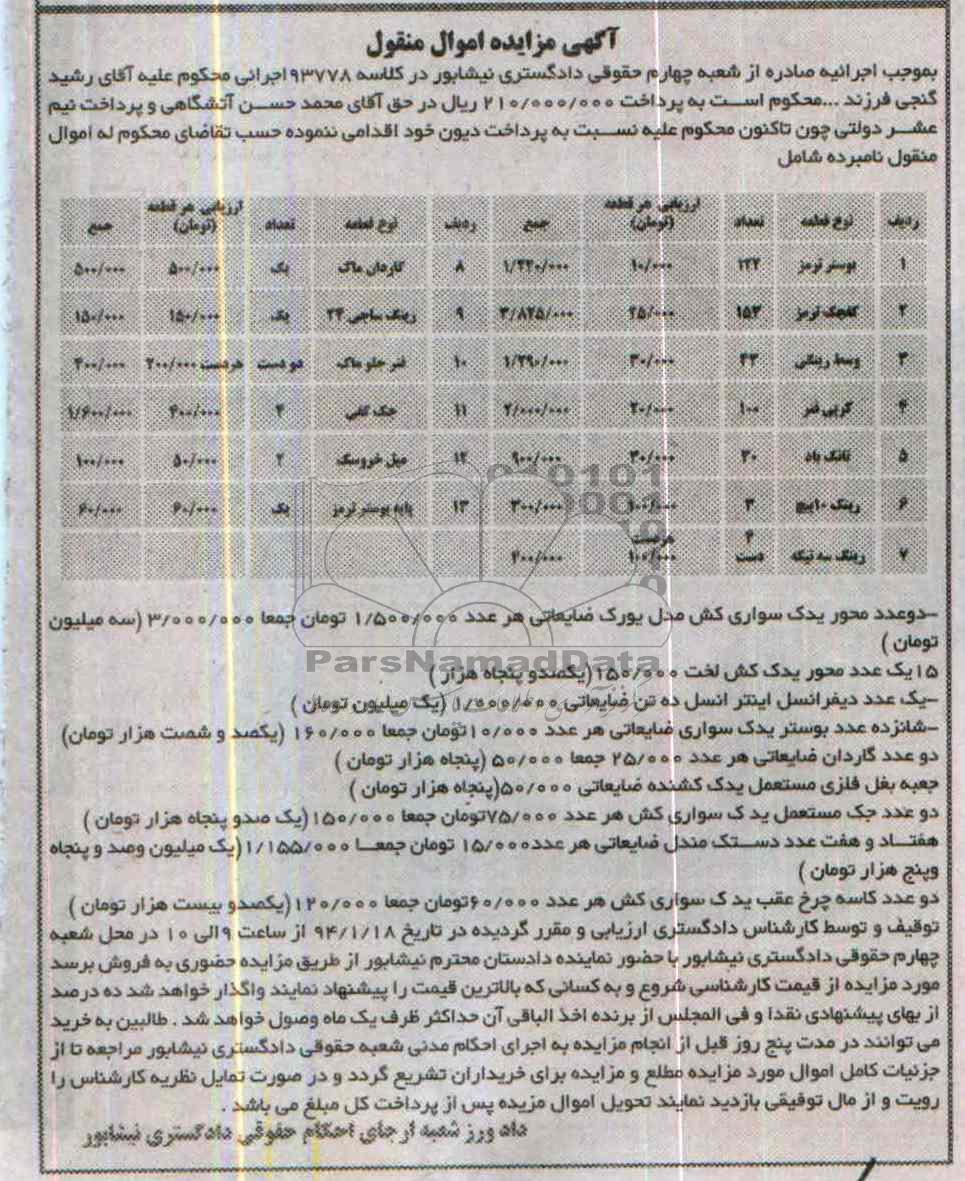 آگهی مزایده اموال منقول
بموجب اجرائیه صادره از شعبه چهارم حقوقی دادگستری نیشابور در کلاسه ۹۳۷۷۸ اجرائی محکوم علیه آقای رشید
گنجی فرزند ...محکوم است به پرداخت ۲۱۰/۰۰۰/۰۰۰ ریال در حق آقای محمد حسن آتشگاهی و پرداخت نیم
عشر دولتی چون تاکنون محکوم علیه نسبت به پرداخت دیون خود اقدامی ننموده حسب تقاضای محکوم له اموال
منقول نامبرده شامل
ردیف نوع قطعه تعداد ارزیابی هر قطعه (تومان) جمع ردیف نوع قطعه تعداد ارزیابی هر قطعه (تومان) جمع
۱ بوستر ترمز ۱۲۲ ۱۰/۰۰۰ ۱/۲۲۰/۰۰۰ ۸ گاردان ماک یک ۵۰۰/۰۰۰ ۵۰۰/۰۰۰
۲ کفچک ترمز ۱۵۳ ۲۵/۰۰۰ ۳/۸۲۵/۰۰۰ ۹ رینگ ساچی ۲۴ یک ۱۵۰/۰۰۰ ۱۵۰/۰۰۰
۳ وسط رینگی ۴۳ ۳۰/۰۰۰ ۱/۲۹۰/۰۰۰ ۱۰ فنر جلو ماک دو دست هردست ۲۰۰/۰۰۰ ۴۰۰/۰۰۰
۴ کرپی فنر ۱۰۰ ۲۰/۰۰۰ ۲/۰۰۰/۰۰۰ ۱۱ جک کفی ۴ ۴۰۰/۰۰۰ ۱/۶۰۰/۰۰۰
۵ تانک باد ۳۰ ۳۰/۰۰۰ ۹۰۰/۰۰۰ ۱۲ میل خروسک ۲ ۵۰/۰۰۰ ۱۰۰/۰۰۰
۶ رینگ ۱۰پیچ ۳ ۱۰۰/۰۰۰ ۳۰۰/۰۰۰ ۱۳ پایه بوستر ترمز یک ۶۰/۰۰۰ ۶۰/۰۰۰
۷ رینگ سه تیکه ۴ دست هردست ۱۰۰/۰۰۰ ۴۰۰/۰۰۰
-دوعدد محور یدک سواری کش مدل یورک ضایعاتی هر عدد ۱/۵۰۰/۰۰۰ تومان جمعا ۳/۰۰۰/۰۰۰ (سه میلیون
تومان )
ParsNamadData
۱۵یک عدد محور یدک کش لخت ۱۵۰/۰۰۰(یکصدو پنجاه هزار )
-یک عدد دیفرانسل اینتر انسل ده تن ضایعاتی ۱/۰۰۰/۰۰۰ (یک میلیون تومان )
-شانزده عدد بوستر یدک سواری ضایعاتی هر عدد ۱۰/۰۰۰تومان جمعا ۱۶۰/۰۰۰ (یکصد و شصت هزار تومان)
دو عدد گاردان ضایعاتی هر عدد ۲۵/۰۰۰ جمعا ۵۰/۰۰۰ (پنجاه هزار تومان )
جعبه بغل فلزی مستعمل یدک کشنده ضایعاتی ۵۰/۰۰۰(پنجاه هزار تومان )
دو عدد جک مستعمل ید ک سواری کش هر عدد ۷۵/۰۰۰تومان جمعا ۱۵۰/۰۰۰(یک صدو پنجاه هزار تومان )
هفتاد و هفت عدد دستک مندل ضایعاتی هر عدد۱۵/۰۰۰ تومان جمعا ۱/۱۵۵/۰۰۰(یک میلیون وصد و پنجاه
وپنج هزار تومان )
دو عدد کاسه چرخ عقب ید ک سواری کش هر عدد ۶۰/۰۰۰تومان جمعا ۱۲۰/۰۰۰(یکصدو بیست هزار تومان )
توقیف و توسط کارشناس دادگستری ارزیابی و مقرر گردیده در تاریخ ۹۴/۱/۱۸ از ساعت ۹الی ۱۰ در محل شعبه
چهارم حقوقی دادگستری نیشابور با حضور نماینده دادستان محترم نیشابور از طریق مزایده حضوری به فروش برسد
مورد مزایده از قیمت کارشناسی شروع و به کسانی که بالاترین قیمت را پیشنهاد نمایند واگذار خواهد شد ده درصد
از بهای پیشنهادی نقدا و فی المجلس از برنده اخذ الباقی آن حداکثر ظرف یک ماه وصول خواهد شد . طالبین به خرید
می توانند در مدت پنج روز قبل از انجام مزایده به اجرای احکام مدنی شعبه حقوقی دادگستری نیشابور مراجعه تا از
جزئیات کامل اموال مورد مزایده مطلع و مزایده برای خریداران تشریع گردد و در صورت تمایل نظریه کارشناس را
رویت و از مال توقیفی بازدید نمایند تحویل اموال مزیده پس از پرداخت کل مبلغ می باشد .
داد ورز شعبه اجرای احکام حقوقی دادگستری نیشابور